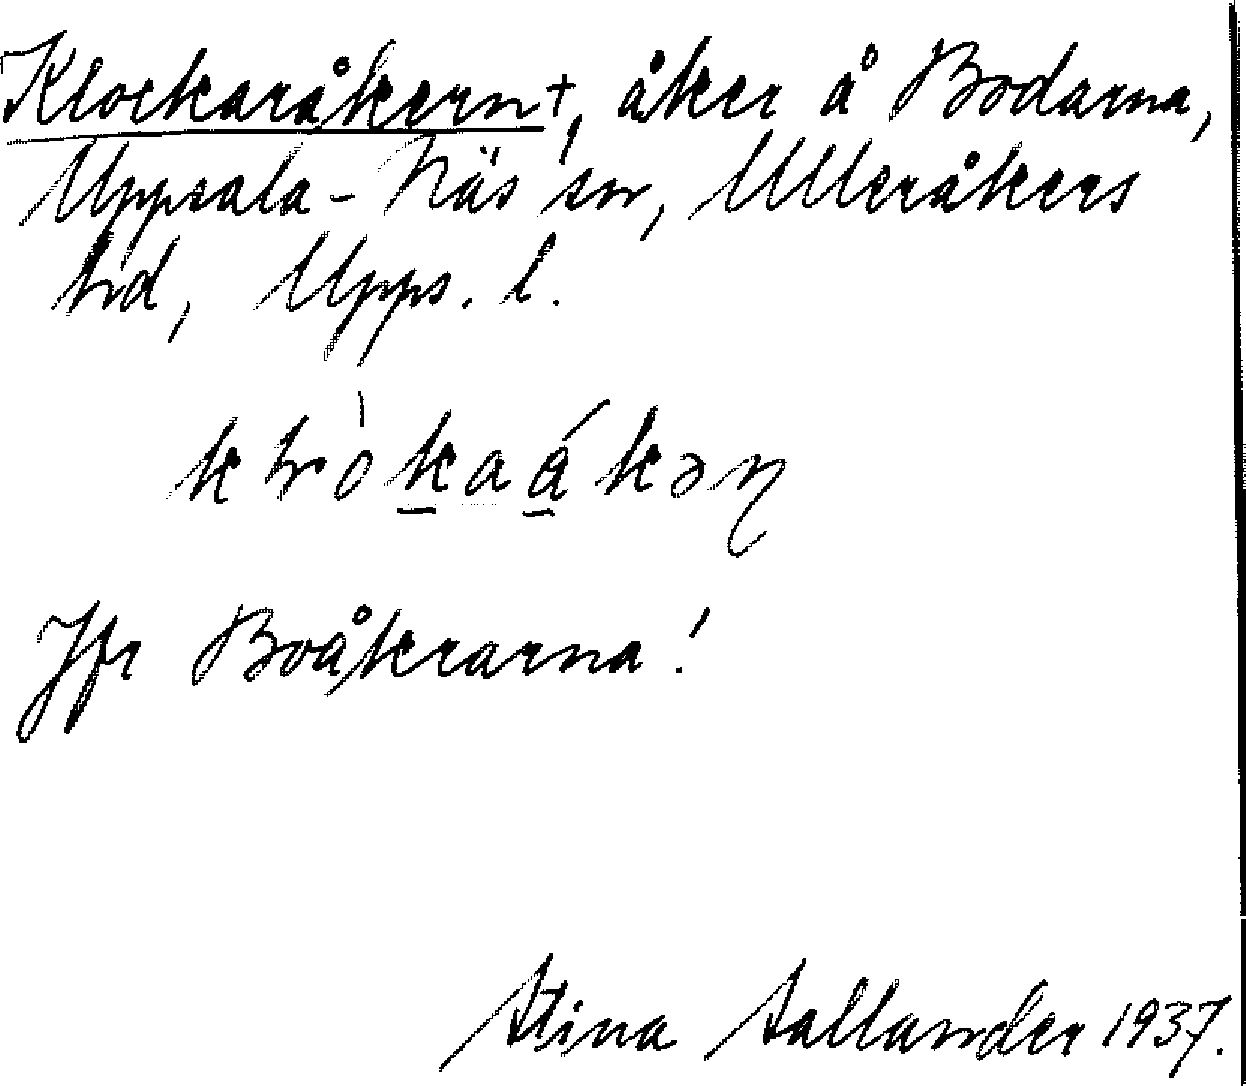 Klockaråkern†, åker å Bodarna,
Uppsala-Näs sn, Ulleråkers
hd, Upps. l.
Jfr Boåkrarna!
Stina Sallander 1937.